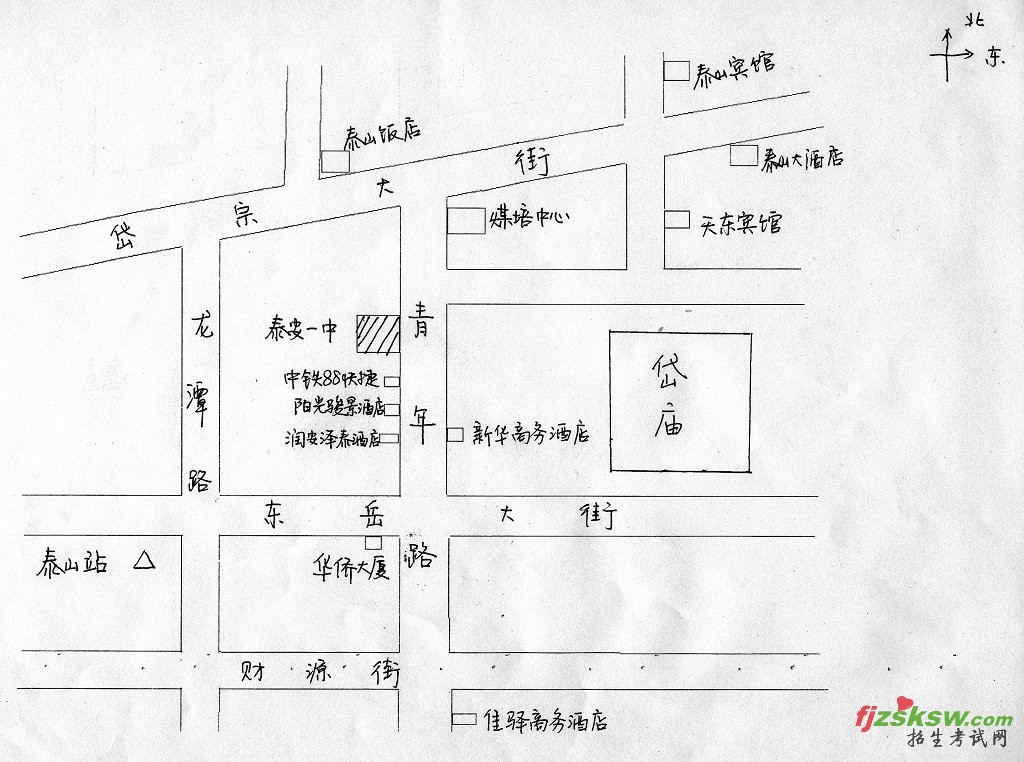 北
东
泰山宾馆
泰山饭店
泰山大酒店
岱宗大街
煤培中心
天东宾馆
泰安一中
中铁88快捷
阳光骏景酒店
润安泽泰酒店
龙潭路
青年路
新华商务酒店
岱庙
东岳大街
泰山站
华侨大厦
财源街
佳驿商务酒店
fjzsksw.com
招生考试网